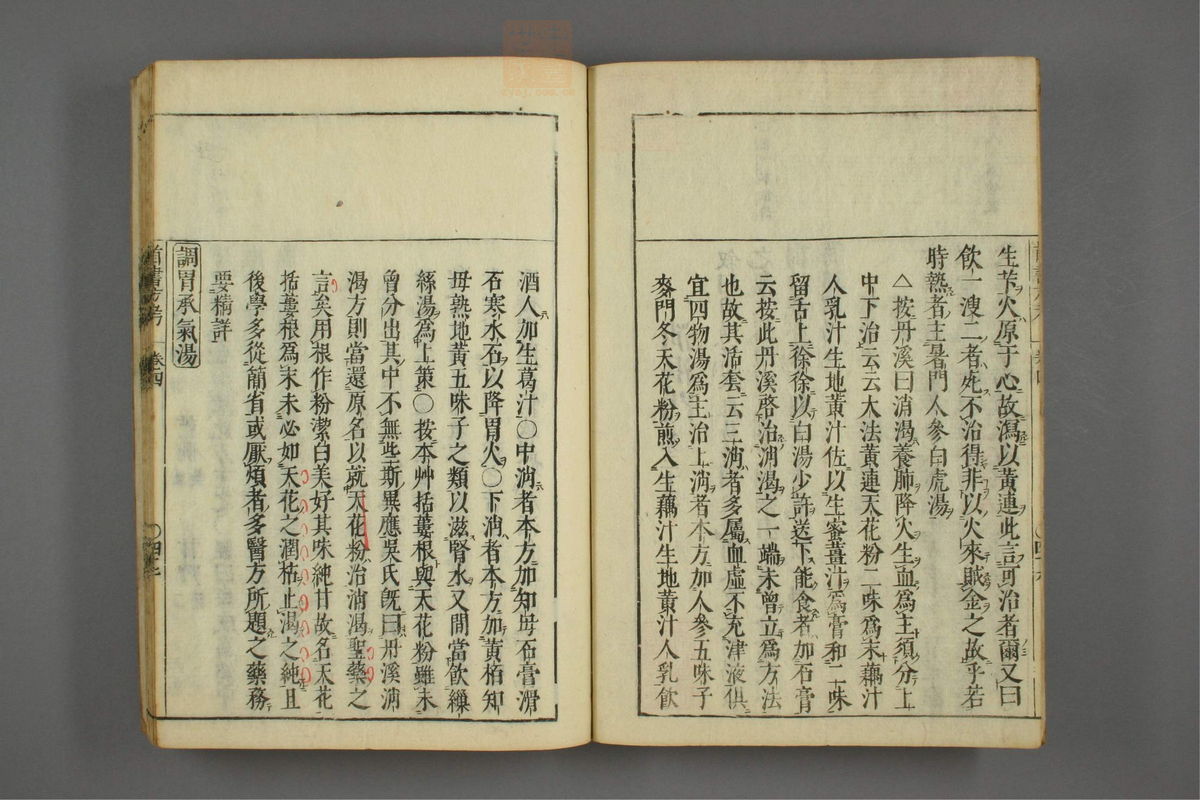 生苄火原于心故瀉以黃連此言可治者爾又曰
飲一溲二者死不治得非以火來賊金之故乎若
時熱者主暑門人參白虎湯
△按丹溪曰消渴養肺降火生血爲主須分上
中下治云云大法黃連天花粉二味爲末藕汁
人乳汁生地黃汁佐以生蜜薑汁爲膏和二味
留舌上徐徐以白湯少許送下能食者加石膏
云按此丹溪啓治消渴之一端未曾立爲方法
也故其活套云三消者多屬血虛不充津液俱
宜四物湯爲主治上消者本方加人參五味子
麥門冬天花粉煎入生藕汁生地黃汁人乳飲
酒人加生葛汁○中消者本方加知母石膏滑
石寒水石以降胃火○下消者本方加黃栢知
母熟地黃五味子之類以滋腎水又間當飲繅
絲湯爲上策○按本艸栝蔞根與天花粉雖未
曾分出其中不無些斯異應吳氏既曰丹溪消
渴方則當還原名以就天花粉治消渴聖藥之
言矣用根作粉潔白美好其味純甘故名天花
栝蔞根爲末未必如天花之潤枯止渴之純且
後學多從簡省或厭煩者多醫方所題之藥務
要精詳
調胃承氣湯
卷四